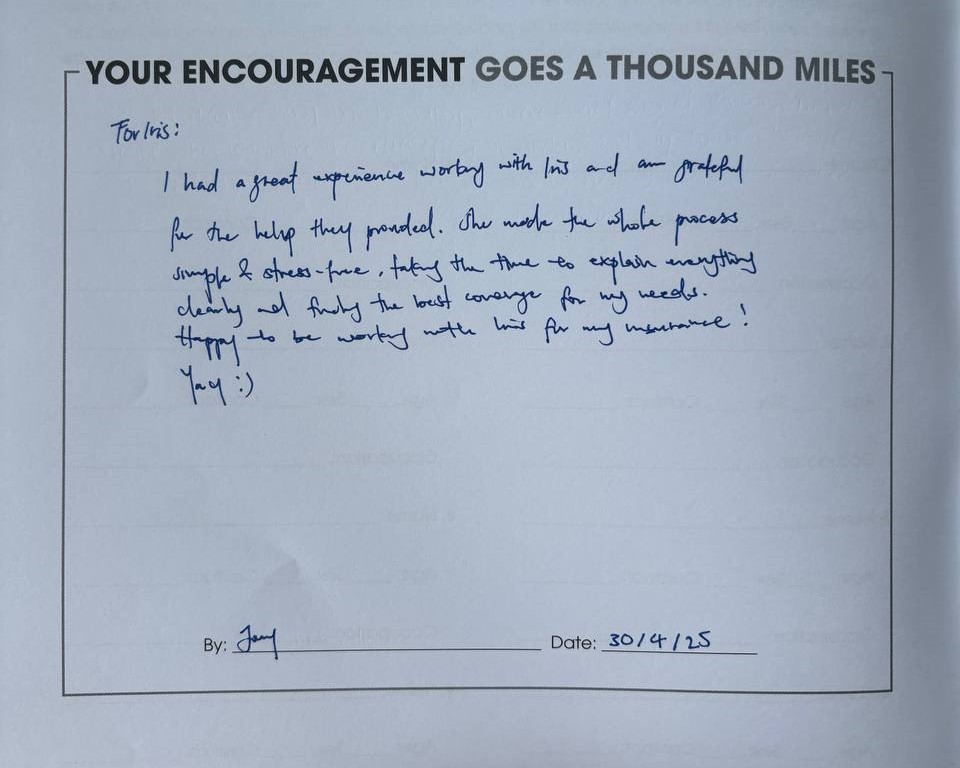 YOUR ENCOURAGEMENT GOES A THOUSAND MILES
For Iris:
I had a great experience working with Iris and am grateful
for the help they provided. She made the whole process
simple & stress-free, taking the time to explain everything
clearly and finding the best coverage for my needs.
Happy to be working with Iris for my insurance!
Yay :)
By:
Date: 30/4/25